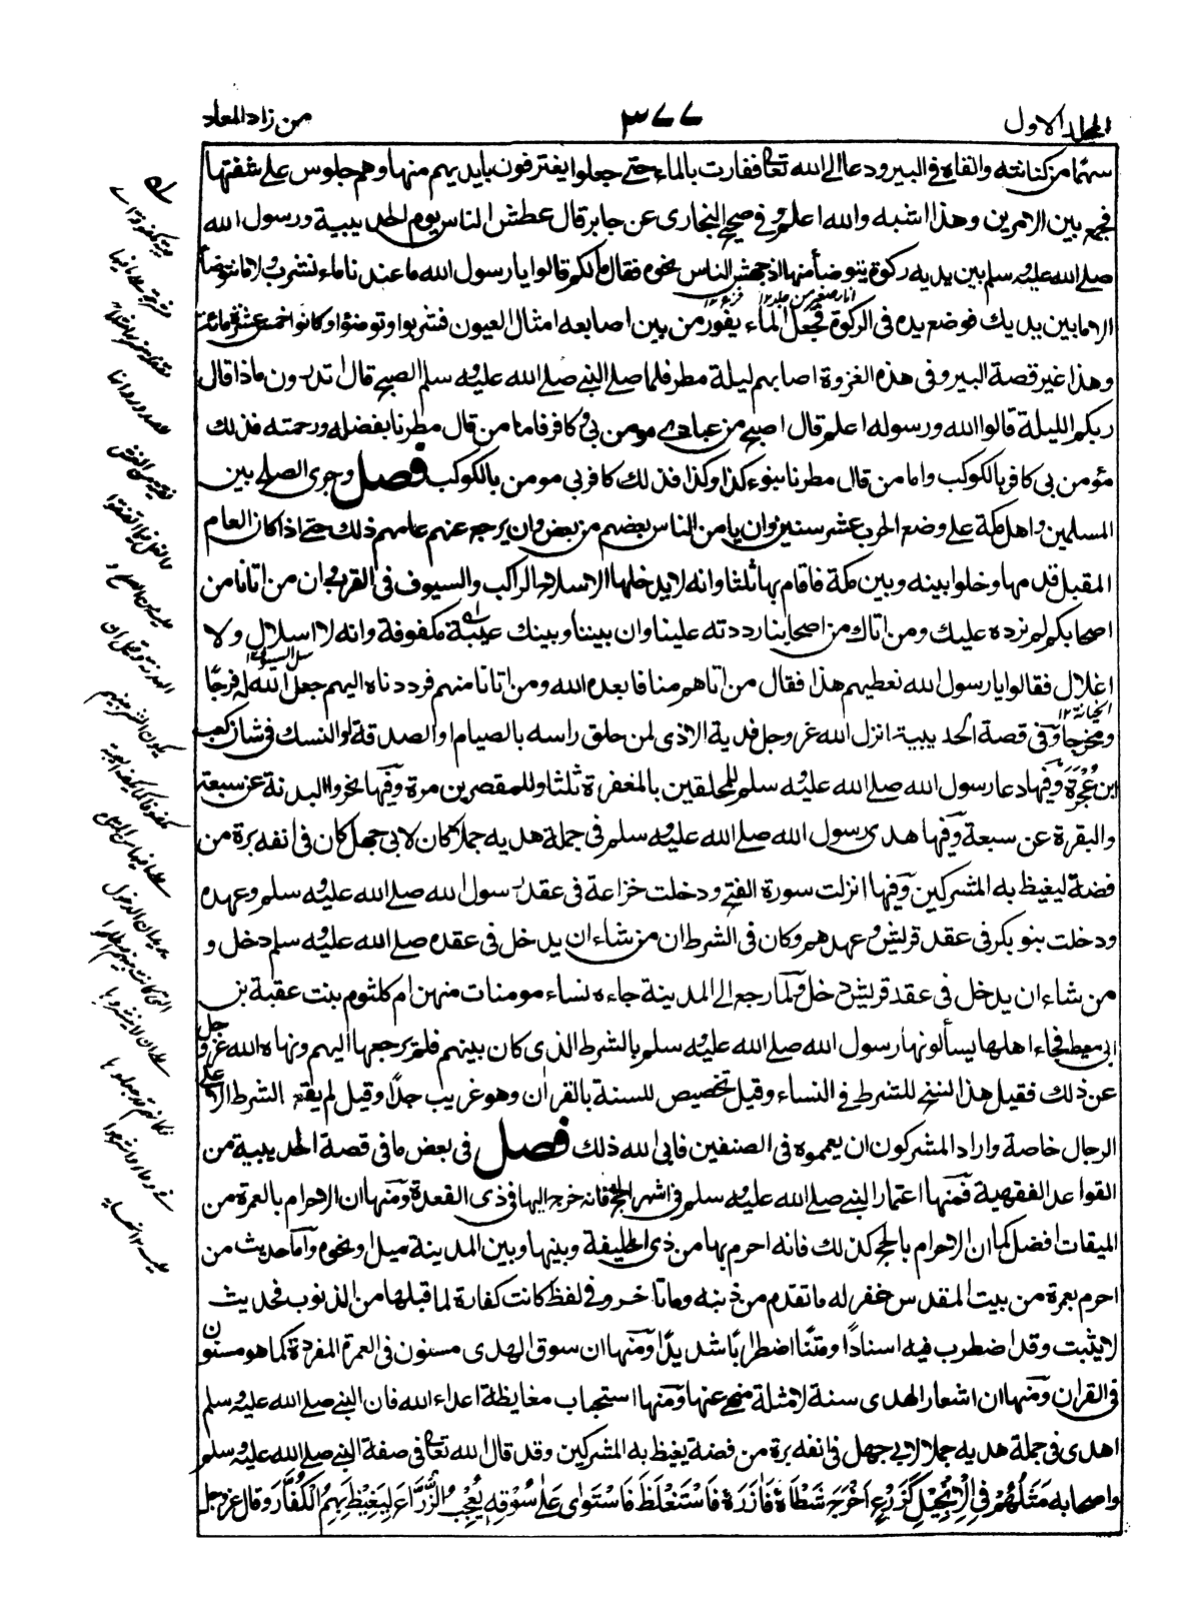 المجلد الاول
٣٧٧
من زاد المعاد
سهما من كنانته والقاه في البير ودعا الله تعا ففارت بالماء حتى جعلوا يغترفون بايديهم منها وهم جلوس على شفتها
فجمع بين الامرين وهذا اشبه والله اعلم وفي صحيح البخارى عن جابر قال عطش الناس يوم الحديبية ورسول الله
صلى الله عليه وسلم بين يديه ركوة يتوضأ منها اذ جهش الناس نحوه فقال مالكم قالوا يا رسول الله ما عندنا ماء نشرب ولا ما نتوضأ
الا ما بين يديك فوضع يده فى الركوة فجعل الماء يفور من بين اصابعه امثال العيون فشربوا وتوضؤا وكانوا خمس عشرة مائة
وهذا غير قصة البير وفى هذه الغزوة اصابهم ليلة مطر فلما صلى النبي صلى الله عليه وسلم الصبح قال اتدرون ماذا قال
ربكم الليلة قالوا الله ورسوله اعلم قال اصبح من عبادى مومن بي وكافر فاما من قال مطرنا بفضله ورحمته فذلك
مؤمن بى كافر بالكوكب واما من قال مطرنا بنوء كذا وكذا فذلك كافر بي مومن بالكوكب فصل وجرى الصلح بين
المسلمين واهل مكة على وضع الحرب عشر سنين وان يامن الناس بعضهم من بعض وان يرجع عنهم عامهم ذلك حتى اذا كان العام
المقبل قدمها وخلوا بينه وبين مكة فاقام بها ثلثا وانه لا يدخلها الا بسلاح الراكب والسيوف فى القرب وان من اتانا من
اصحابكم لم نرده عليك ومن اتاك من اصحابنا رددته علينا وان بيننا وبينك عيبة مكفوفة وانه لا اسلال ولا
سل السيوف ١٢
اغلال فقالوا يا رسول الله نعطيهم هذا فقال من اتاهم منا فابعده الله ومن اتانا منهم فرددناه اليهم جعل الله له فرجا
الخيانة ١٢
ومخرجا وفى قصة الحديبية انزل الله عز وجل فدية الاذى لمن حلق راسه بالصيام والصدقة او النسك فى شان كعب
ابن عجرة وفيها دعا رسول الله صلى الله عليه وسلم للمحلقين بالمغفرة ثلثا وللمقصرين مرة وفيها نحروا البدنة عن سبعة
والبقرة عن سبعة وفيها هدى رسول الله صلى الله عليه وسلم فى جملة هديه جملا كان لابى جهل كان فى انفه برة من
فضة ليغيظ به المشركين وفيها انزلت سورة الفتح ودخلت خزاعة فى عقد رسول الله صلى الله عليه وسلم وعهده
ودخلت بنو بكر فى عقد قريش وعهدهم وكان فى الشرط ان من شاء ان يدخل فى عقده صلى الله عليه وسلم دخل و
من شاء ان يدخل فى عقد قريش دخل ولما رجع الى المدينة جاءه نساء مومنات منهن ام كلثوم بنت عقبة بن
ابى معيط فجاء اهلها يسألونها رسول الله صلى الله عليه وسلم بالشرط الذى كان بينهم فلم يرجعها اليهم ونهاه الله عز وجل
عن ذلك فقيل هذا النسخ للشرط فى النساء وقيل تخصيص للسنة بالقرآن وهو غريب جدا وقيل لم يقع الشرط الا على
الرجال خاصة واراد المشركون ان يعموه فى الصنفين فابى الله ذلك فصل فى بعض ما فى قصة الحديبية من
القواعد الفقهية فمنها اعتمار النبي صلى الله عليه وسلم فى اشهر الحج فانه خرج اليها فى ذى القعدة ومنها ان الاحرام بالعمرة من
الميقات افضل كما ان الاحرام بالحج كذلك فانه احرم بها من ذى الحليفة وبينها وبين المدينة ميل او نحوه واما حديث من
احرم بعمرة من بيت المقدس غفر له ما تقدم من ذنبه وما تاخر وفى لفظ كانت كفارة لما قبلها من الذنوب فحديث
لا يثبت وقد اضطرب فيه اسنادا ومتنا اضطرابا شديدا ومنها ان سوق الهدى مسنون فى العمرة المفردة كما هو مسنون
فى القران ومنها ان اشعار الهدى سنة لا مثلة منهي عنها ومنها استحباب مغايظة اعداء الله فان النبي صلى الله عليه وسلم
اهدى فى جملة هديه جملا لابي جهل فى انفه برة من فضة يغيظ به المشركين وقد قال الله تعا فى صفة النبي صلى الله عليه وسلم
واصحابه مَثَلُهُمْ فِي الْاِنْجِيْلِ كَزَرْعٍ اَخْرَجَ شَطْأَهُ فَاٰزَرَهُ فَاسْتَغْلَظَ فَاسْتَوٰى عَلٰى سُوْقِهِ يُعْجِبُ الزُّرَّاعَ لِيَغِيْظَ بِهِمُ الْكُفَّارَ وقال عز وجل